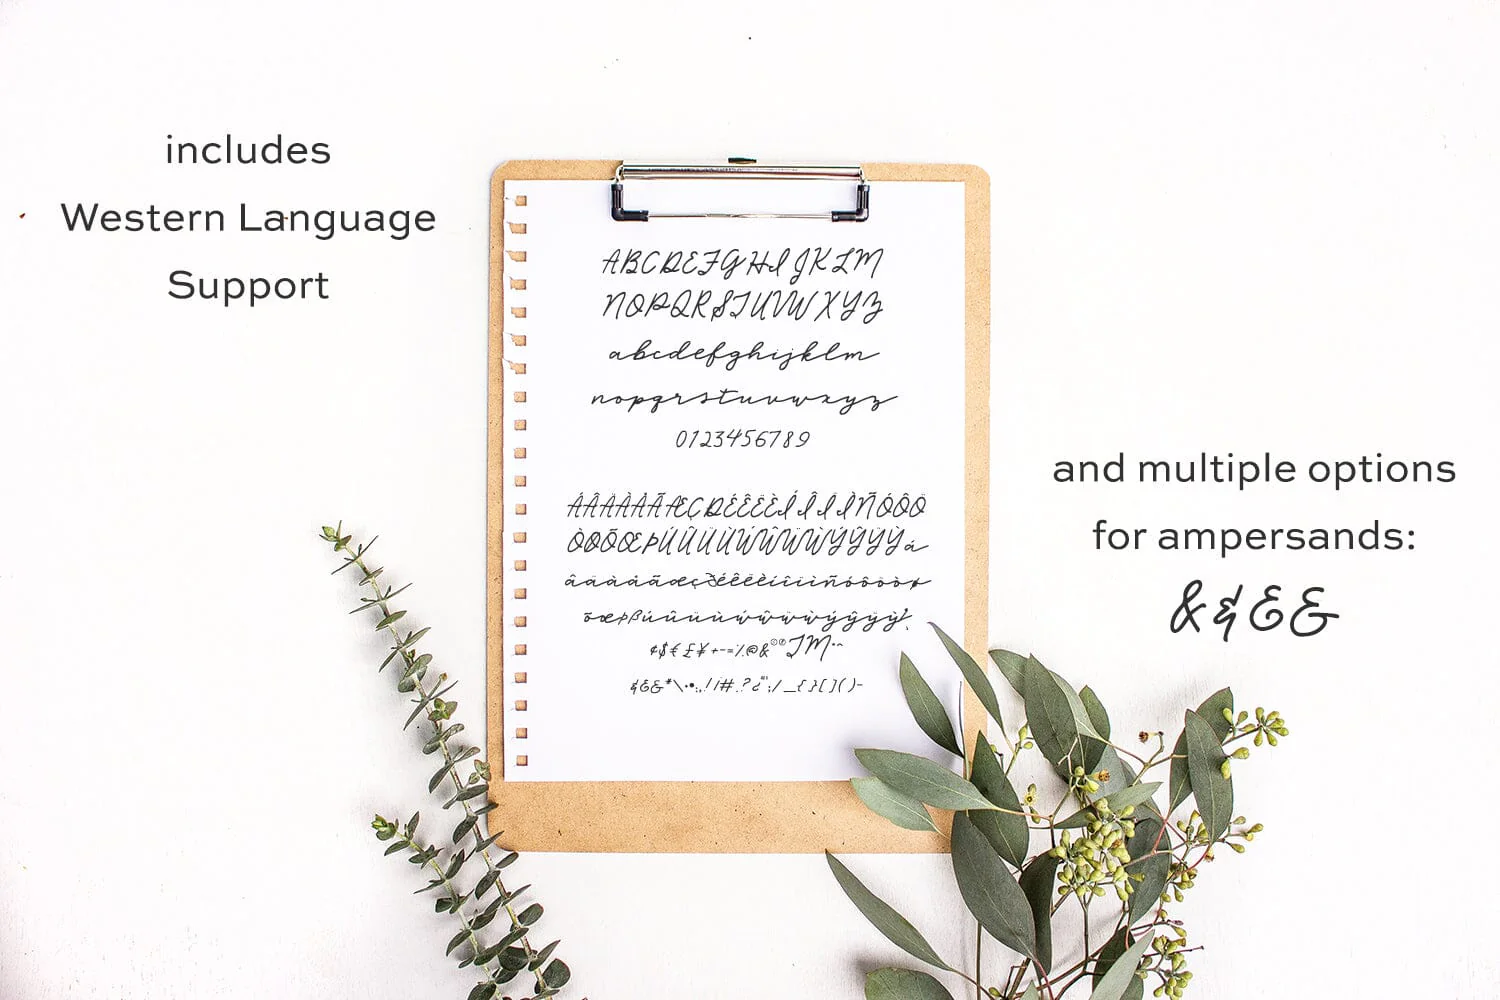 includes
Western Language
Support
ABCDEFGHIJKLM
NOPQRSTUVWXYZ
abcdefghijklm
nopqrstuvwxyz
0123456789
ÁÂÄÀÅÃÆÇÐÉÊËÈÍÎÏÌÑÓÔÖ
ÒØÕŒÞÚÛÜÙẂŴẄẀÝŶŸỲá
âäàåãæçðéêëèíîïìñóôöòø
õœþßúûüùẃŵẅẁýŷÿỳ
¢$€£¥+-=%@&©®TM
&&&*\•:,!¡#.?¿"";/_{}[]()-
and multiple options
for ampersands:
& & & &